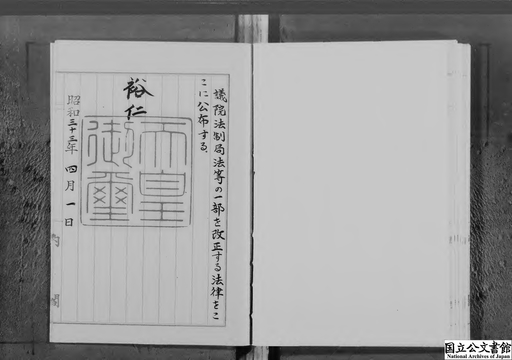 議院法制局法等の一部を改正する法律をこ
こに公布する。
裕仁
天皇
御璽
昭和三十三年四月一日
国立公文書館
National Archives of Japan